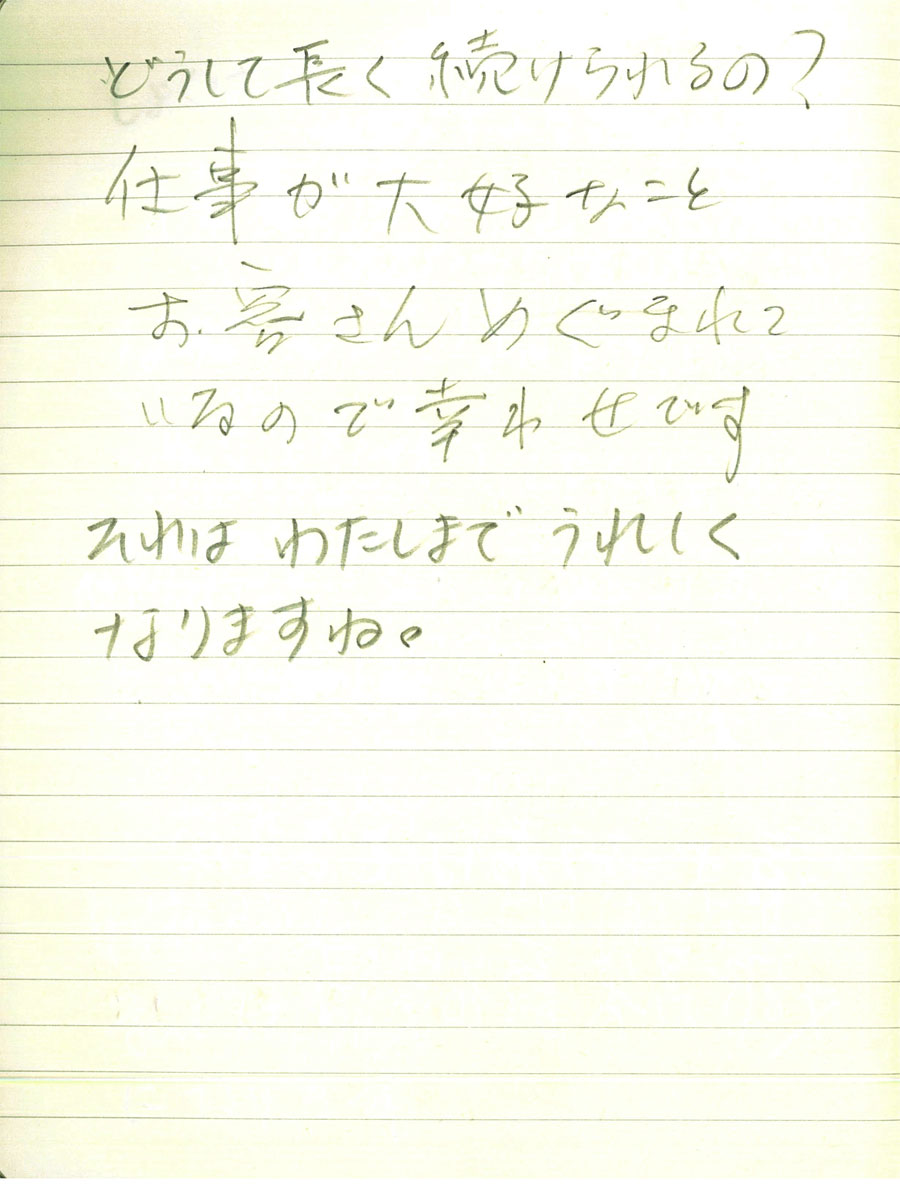 どうして長く続けられるの?
仕事が大好なこと
お客さんめぐまれて
いるので幸わせです
それはわたしまでうれしく
なりますね。